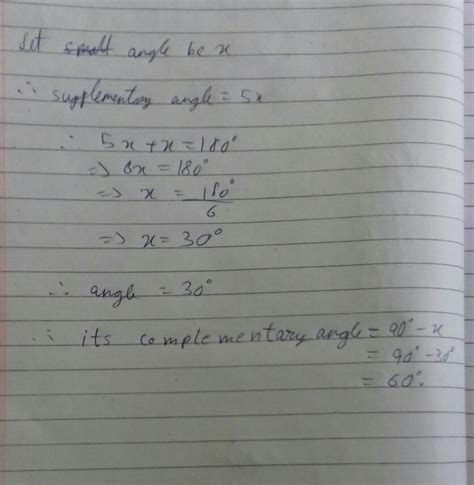 Let small angle be x
∴ supplementary angle = 5x
∴ 5x + x = 180°
=> 6x = 180°
=> x = 180°/6
=> x = 30°
∴ angle = 30°
∴ its complementary angle = 90° - x
= 90° - 30°
= 60°.